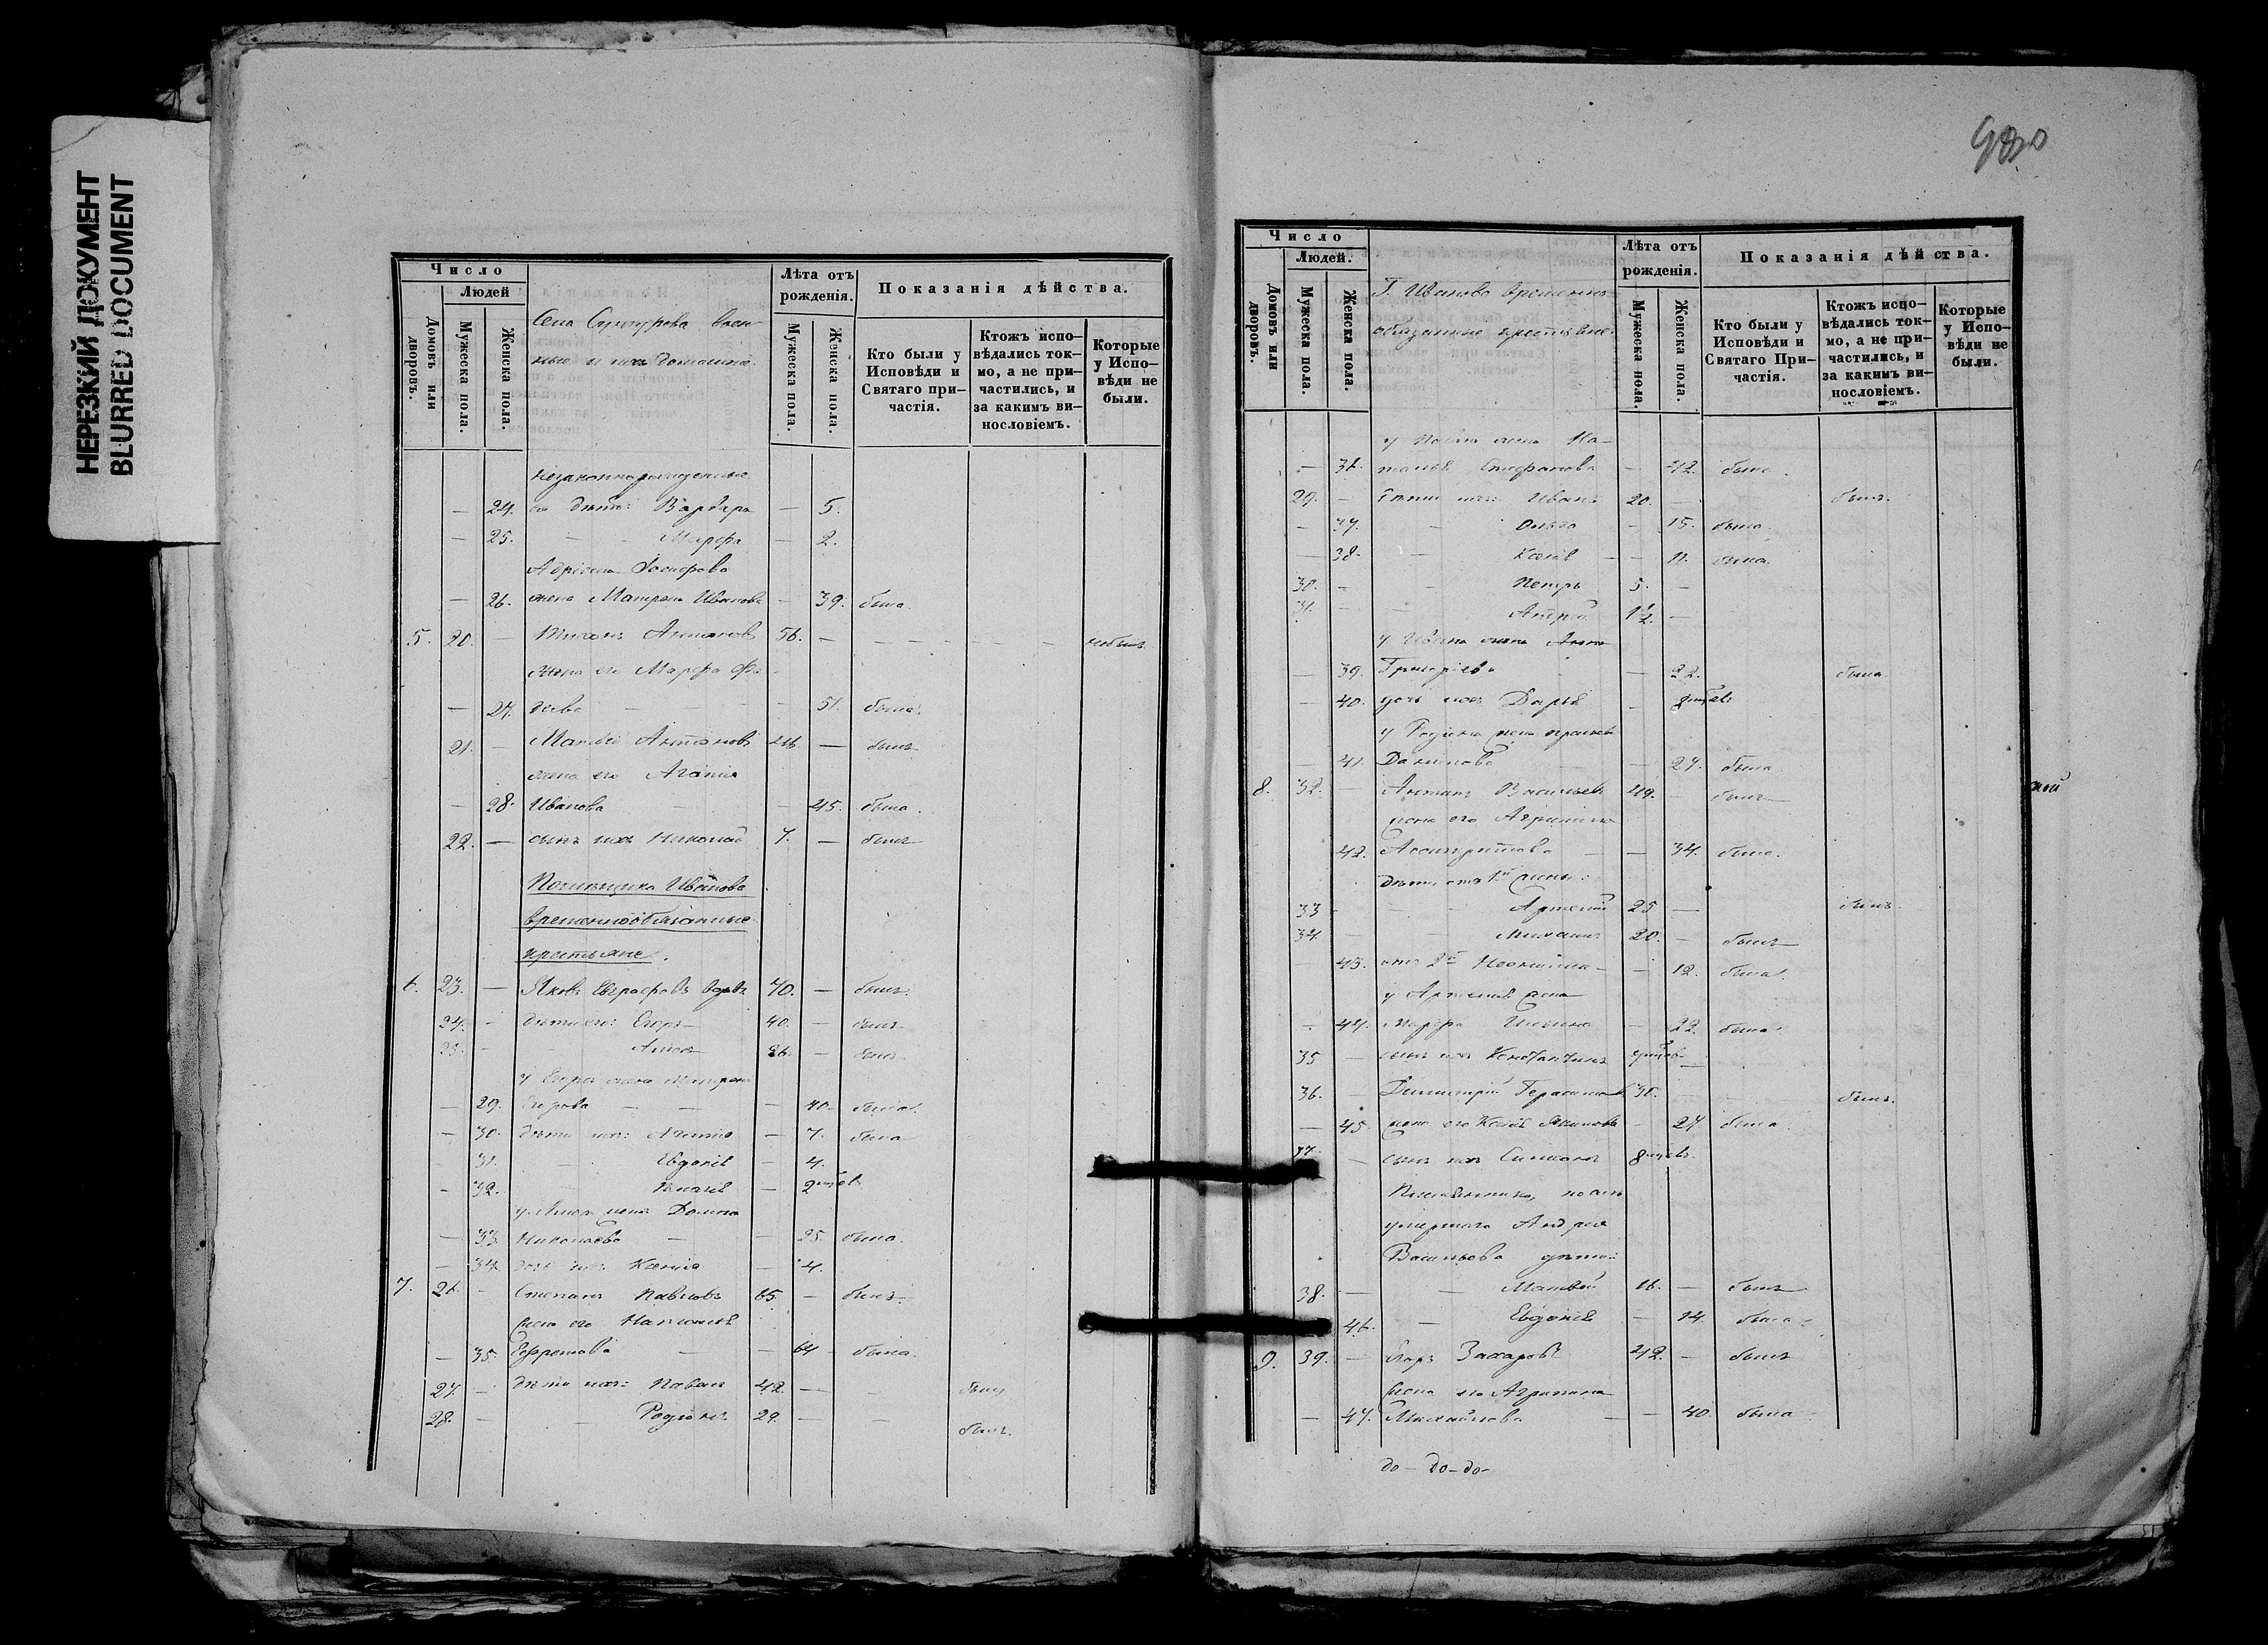 НЕРЕЗКИЙ ДОКУМЕНТ
BLURRED DOCUMENT
Число
Людей
Домовъ или дворовъ.
Мужеска пола.
Женска пола.
Села воен-
ные и ихъ домашніе.
Лѣта отъ рожденія.
Мужеска пола.
Женска пола.
Показанія дѣйства.
Кто были у Исповѣди и Святаго при-частія.
Ктожъ испо-вѣдались ток-мо, а не при-частились, и за какимъ ви-нословіемъ.
Которые у Испо-вѣди не были.
незаконнорожденные
— 24. ея дѣти: Варвара — 5.
— 25. — Марфа — 2.
Адріана Іосифова
— 26. жена Матрона Иванова — 39. была.
5. 20. — Тихонъ Антоновъ 56. — небылъ
жена его Марфа
— 27. — 51. была.
21. — Матвѣй Антоновъ 46. — былъ
жена его Агапія
— 28. Иванова — 45. была.
22. — сынъ ихъ Николай 7. — былъ
Помѣщика Иванова
временнообязанные
крестьяне.
6. 23. — Яковъ Евграфовъ вдовъ 70. — былъ.
24. — дѣти его: Егоръ 40. — былъ
25. — — 26. — былъ
у Егора жена Матрона
— 29. Егорова — 40. была.
— 30. дѣти ихъ: — 7. была
— 31. — Евдокія — 4.
— 32. — — 2 мѣсев
жена Домна
— 33. Николаева — 25. была.
— 34. дочь ихъ Ксенія — 4.
7. 26. — Степанъ Павловъ 65. — былъ.
жена его Наталія
— 35. Ефремова — 64 была.
27. — дѣти ихъ: Павелъ 42. — былъ
28. — — Родіонъ 29. — былъ.
Число
Людей.
Домовъ или дворовъ.
Мужеска пола.
Женска пола.
Г. Иванова временно-
обязанные крестьяне.
Лѣта отъ рожденія.
Мужеска пола.
Женска пола.
Показанія дѣйства.
Кто были у Исповѣди и Святаго При-частія.
Ктожъ испо-вѣдались ток-мо, а не при-частились, и за какимъ ви-нословіемъ.
Которые у Испо-вѣди не были.
у Павла жена На-
— 36. талія Стефанова — 42. была.
29. — дѣти ихъ: Иванъ 20. — былъ.
— 37. — Ольга — 15. была.
— 38. — Ксенія — 11. была.
30. — — Петръ 5. —
31. — — Андрей 1½. —
у Ивана жена Анна
— 39. Григоріева — 22. была.
— 40. дочь ихъ Дарья — 8 мѣсев
у Родіона жена
— 41. Данилова — 27. была
8. 32. — Антонъ Васильевъ 49. — былъ
жена его Агрипина
42. — 34. была.
дѣти отъ 1й жены:
33 — — Артемій 25. — былъ.
34. — — Михаилъ 20. — былъ
— 43. отъ 2й — 12. была.
у Артемія жена
— 44. Марфа — 22. была.
35 — сынъ ихъ Константинъ мѣсев
36. — Димитрій Герасимовъ 30. — былъ.
— 45. жена его Ксенія — 27 была.
37. — сынъ ихъ Симеонъ 8 мѣсев.
Племянники, послѣ
умершаго Андрея
Васильева дѣти:
38. — — Матвѣй 16. — былъ
46. — Евдокія — 14. была.
9. 39. — Егоръ Захаровъ 42. — былъ
жена его Агрипина
— 47. Михайлова — 40. была
до — до — до —